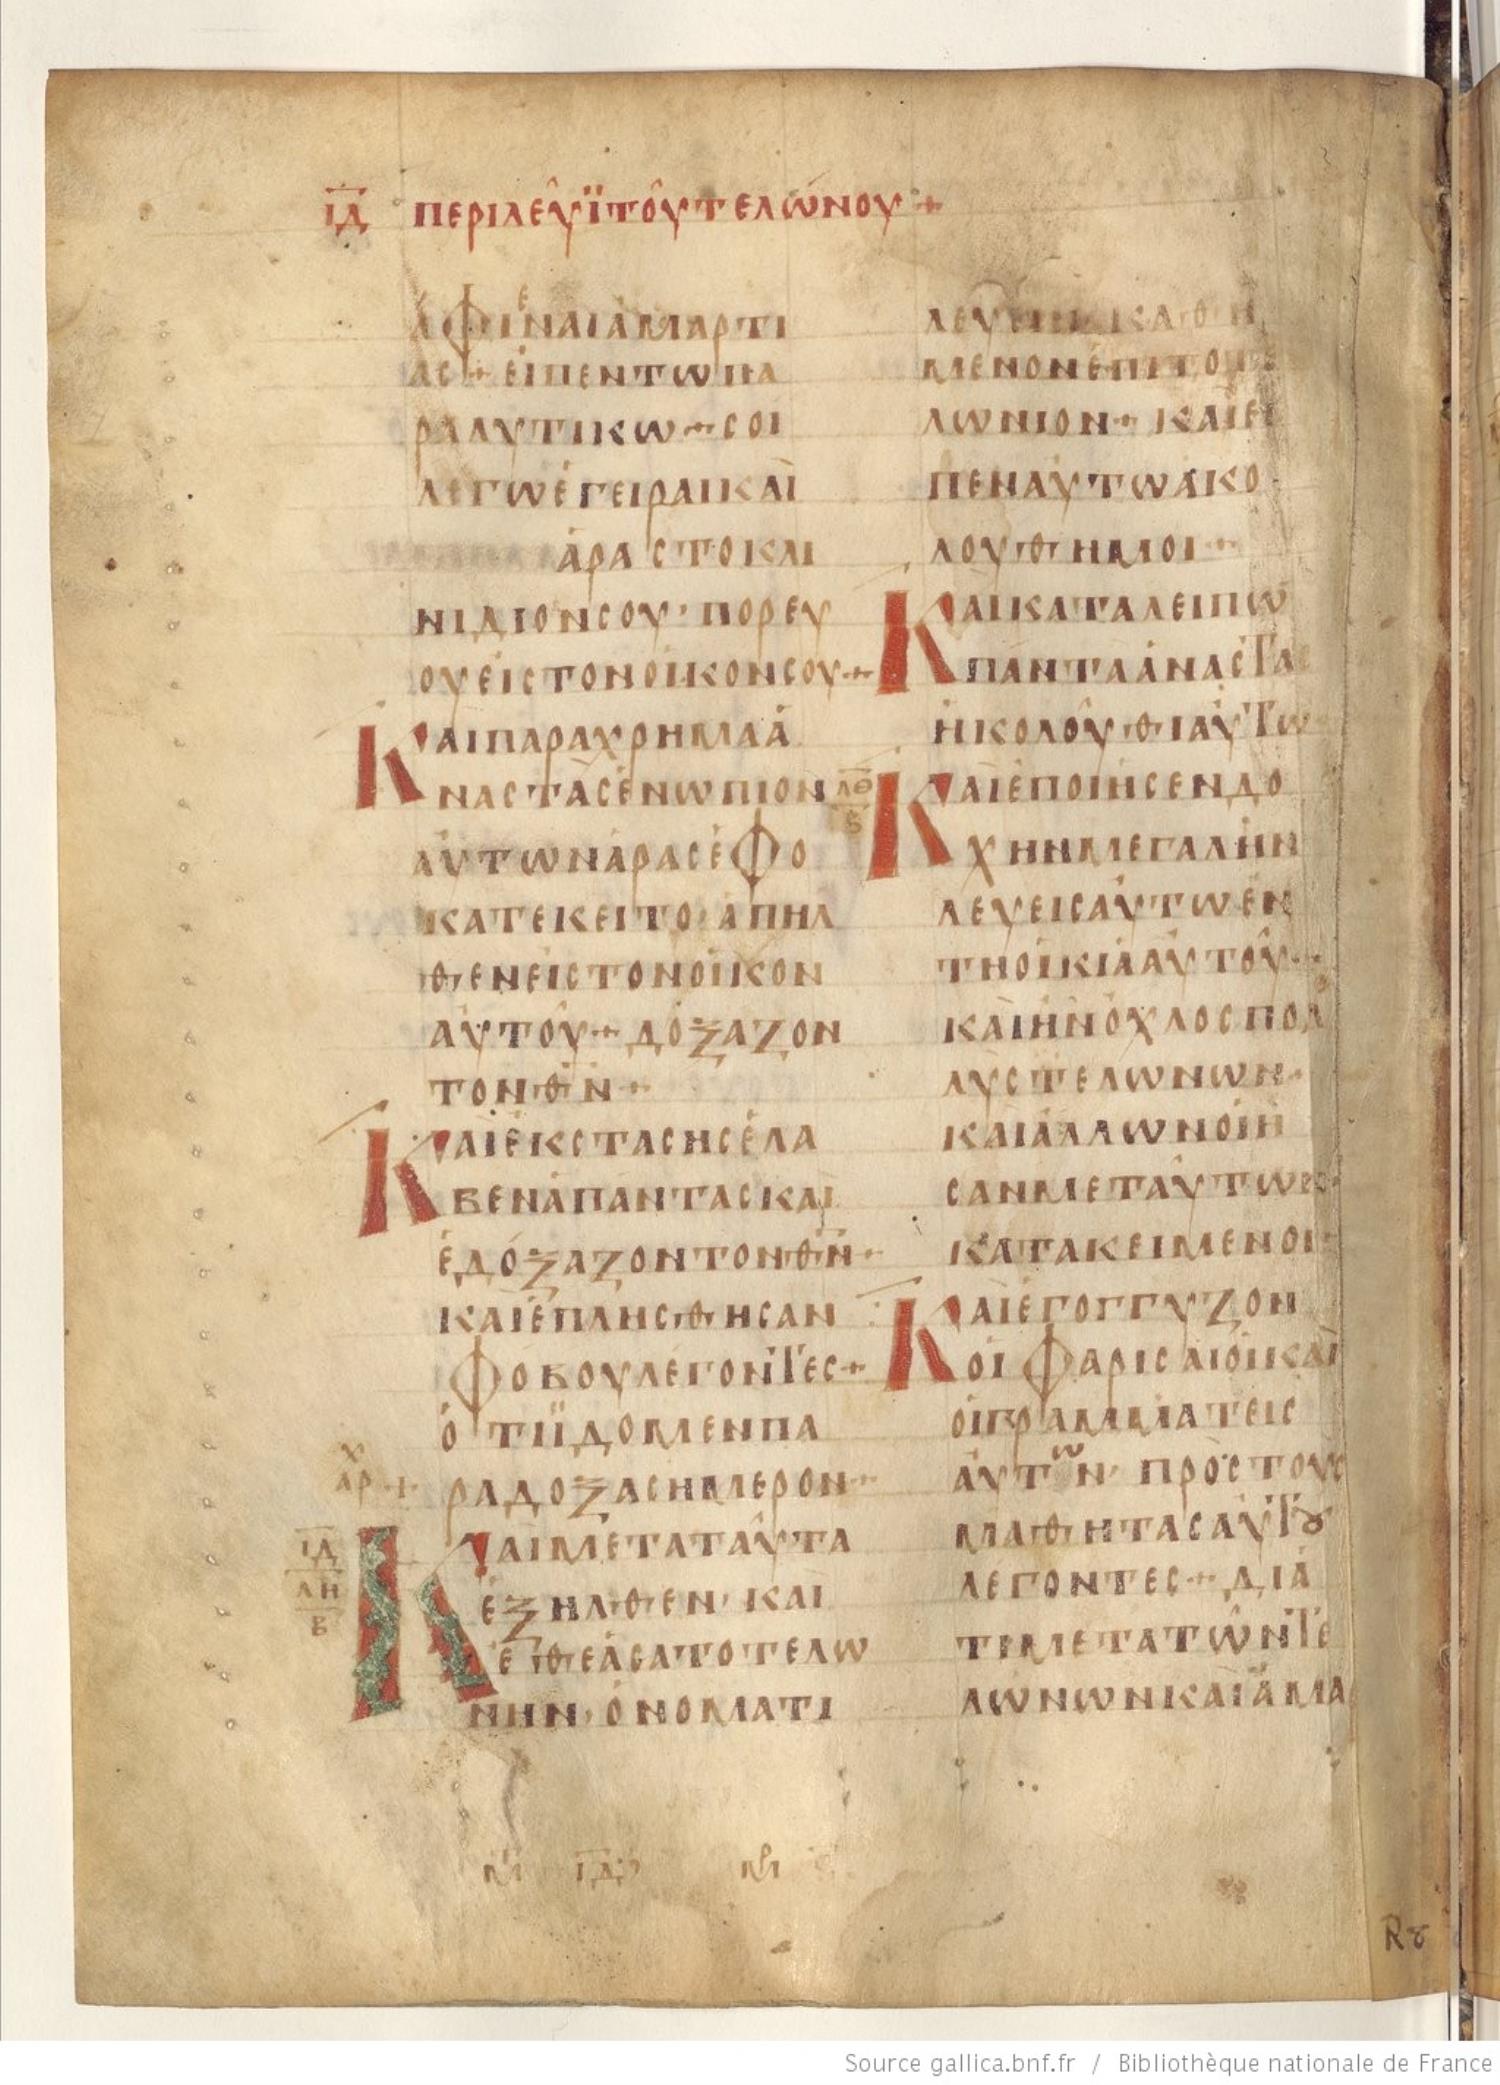 ΙΔ ΠΕΡΙ ΛΕΥΪ ΤΟΥ ΤΕΛΩΝΟΥ +
ΑΦΙΕΝΑΙ ΑΜΑΡΤΙ
ΑС + ΕΙΠΕΝ ΤΩ ΠΑ
ΡΑΛΥΤΙΚΩ + СΟΙ
ΛΕΓΩ ΕΓΕΙΡΑΙ ΚΑΙ
ΑΡΑС ΤΟ ΚΛΙ
ΝΙΔΙΟΝ СΟΥ · ΠΟΡΕΥ
ΟΥ ΕΙС ΤΟΝ ΟΙΚΟΝ СΟΥ +
ΚΑΙ ΠΑΡΑΧΡΗΜΑ Α
ΝΑСΤΑС ΕΝΩΠΙΟΝ
ΑΥΤΩΝ ΑΡΑС ΕΦ Ο
ΚΑΤΕΚΕΙΤΟ · ΑΠΗΛ
ΘΕΝ ΕΙС ΤΟΝ ΟΙΚΟΝ
ΑΥΤΟΥ + ΔΟΞΑΖΟΝ
ΤΟΝ ΘΝ +
ΚΑΙ ΕΚСΤΑСΗС ΕΛΑ
ΒΕΝ ΑΠΑΝΤΑС ΚΑΙ
ΕΔΟΞΑΖΟΝ ΤΟΝ ΘΝ +
ΚΑΙ ΕΠΛΗСΘΗСΑΝ
ΦΟΒΟΥ ΛΕΓΟΝΤΕС +
ΟΤΙ ΪΔΟΜΕΝ ΠΑ
ΡΑΔΟΞΑ СΗΜΕΡΟΝ +
ΑΡΧ +
ΙΔ
ΛΗ
Β
ΚΑΙ ΜΕΤΑ ΤΑΥΤΑ
ΕΞΗΛΘΕΝ · ΚΑΙ
ΕΘΕΑСΑΤΟ ΤΕΛΩ
ΝΗΝ · ΟΝΟΜΑΤΙ
ΛΕΥΕΙΝ ΚΑΘΗ
ΜΕΝΟΝ ΕΠΙ ΤΟ ΤΕ
ΛΩΝΙΟΝ + ΚΑΙ ΕΙ
ΠΕΝ ΑΥΤΩ ΑΚΟ
ΛΟΥΘΗ ΜΟΙ +
ΚΑΙ ΚΑΤΑΛΕΙΠΩ
ΠΑΝΤΑ ΑΝΑСΤΑС
ΗΚΟΛΟΥΘΙ ΑΥΤΩ
ΛΘ
Β
ΚΑΙ ΕΠΟΙΗСΕΝ ΔΟ
ΧΗΝ ΜΕΓΑΛΗΝ
ΛΕΥΕΙС ΑΥΤΩ ΕΝ
ΤΗ ΟΙΚΙΑ ΑΥΤΟΥ
ΚΑΙ ΗΝ ΟΧΛΟС ΠΟΛ
ΛΥС ΤΕΛΩΝΩΝ
ΚΑΙ ΑΛΛΩΝ ΟΙ Η
СΑΝ ΜΕΤ ΑΥΤΩΝ
ΚΑΤΑΚΕΙΜΕΝΟΙ
ΚΑΙ ΕΓΟΓΓΥΖΟΝ
ΟΙ ΦΑΡΙСΑΙΟΙ ΚΑΙ
ΟΙ ΓΡΑΜΜΑΤΕΙС
ΑΥΤΩΝ · ΠΡΟС ΤΟΥС
ΜΑΘΗΤΑС ΑΥΤΟΥ
ΛΕΓΟΝΤΕС + ΔΙΑ
ΤΙ ΜΕΤΑ ΤΩΝ ΤΕ
ΛΩΝΩΝ ΚΑΙ ΑΜΑ
R8
Source gallica.bnf.fr / Bibliothèque nationale de France